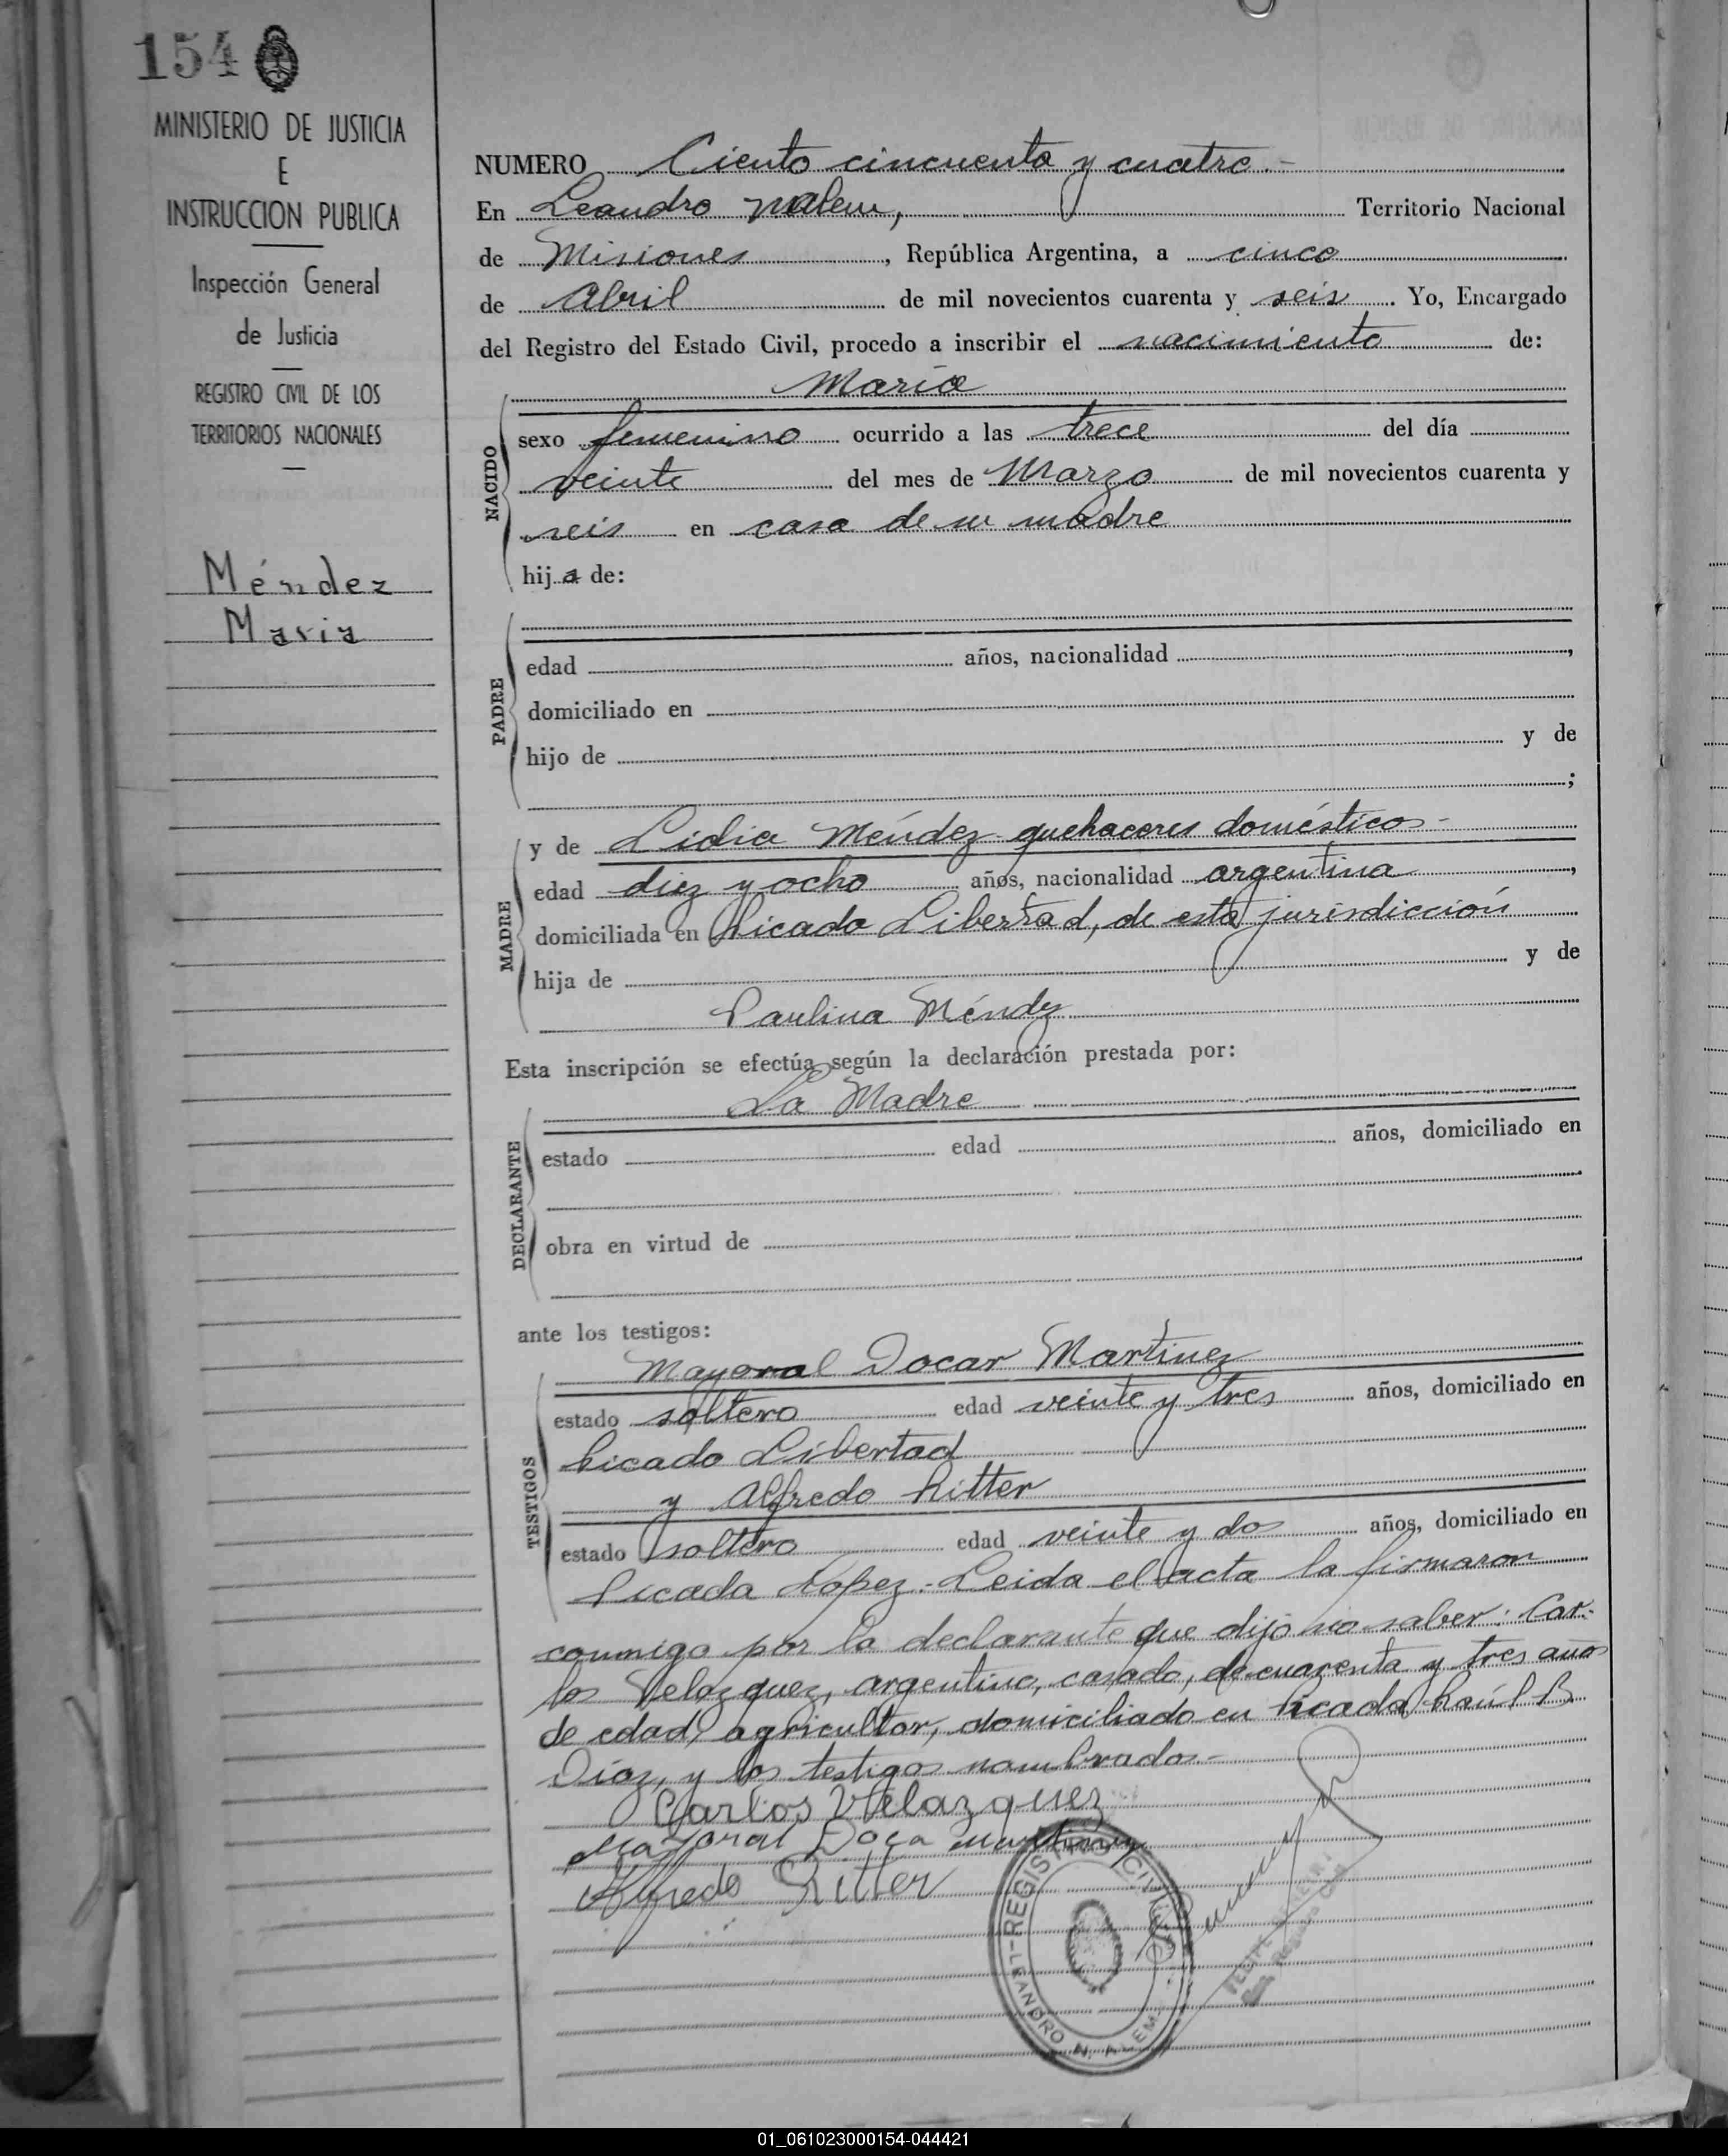 154
MINISTERIO DE JUSTICIA
E
INSTRUCCION PUBLICA
Inspección General
de Justicia
REGISTRO CIVIL DE LOS
TERRITORIOS NACIONALES
Méndez
Maria
NUMERO Ciento cincuenta y cuatro.-
En Leandro nalem, Territorio Nacional
de Misiones, República Argentina, a cinco
de Abril de mil novecientos cuarenta y seis. Yo, Encargado
del Registro del Estado Civil, procedo a inscribir el nacimiento de:
Maria
NACIDO
sexo femenino ocurrido a las trece del día
veinte del mes de Marzo de mil novecientos cuarenta y
seis en casa de su madre
hija de:
PADRE
edad años, nacionalidad ,
domiciliado en
hijo de y de
;
MADRE
y de Lidia Méndez quehaceres domésticos-
edad diez y ocho años, nacionalidad argentina,
domiciliada en Picada Libertad, de esta jurisdicción
hija de y de
Paulina Méndez
Esta inscripción se efectúa según la declaración prestada por:
La Madre
DECLARANTE
estado edad años, domiciliado en
obra en virtud de
ante los testigos:
TESTIGOS
Mayoral Docar Martinez
estado soltero edad veinte y tres años, domiciliado en
Picada Libertad
y Alfredo Ritter
estado soltero edad veinte y dos años, domiciliado en
Picada Lopez.-Leida el acta la firmaron
conmigo por la declarante que dijo no saber: Car-
los Velazquez, argentino, casado, de cuarenta y tres años
de edad, agricultor, domiciliado en Picada Raúl B.
Díaz, y los testigos nombrados.-
Carlos Velazquez
Mayoral Martinez
Alfredo Ritter
REGISTRO CIVIL
LEANDRO N. ALEM
01_061023000154-044421